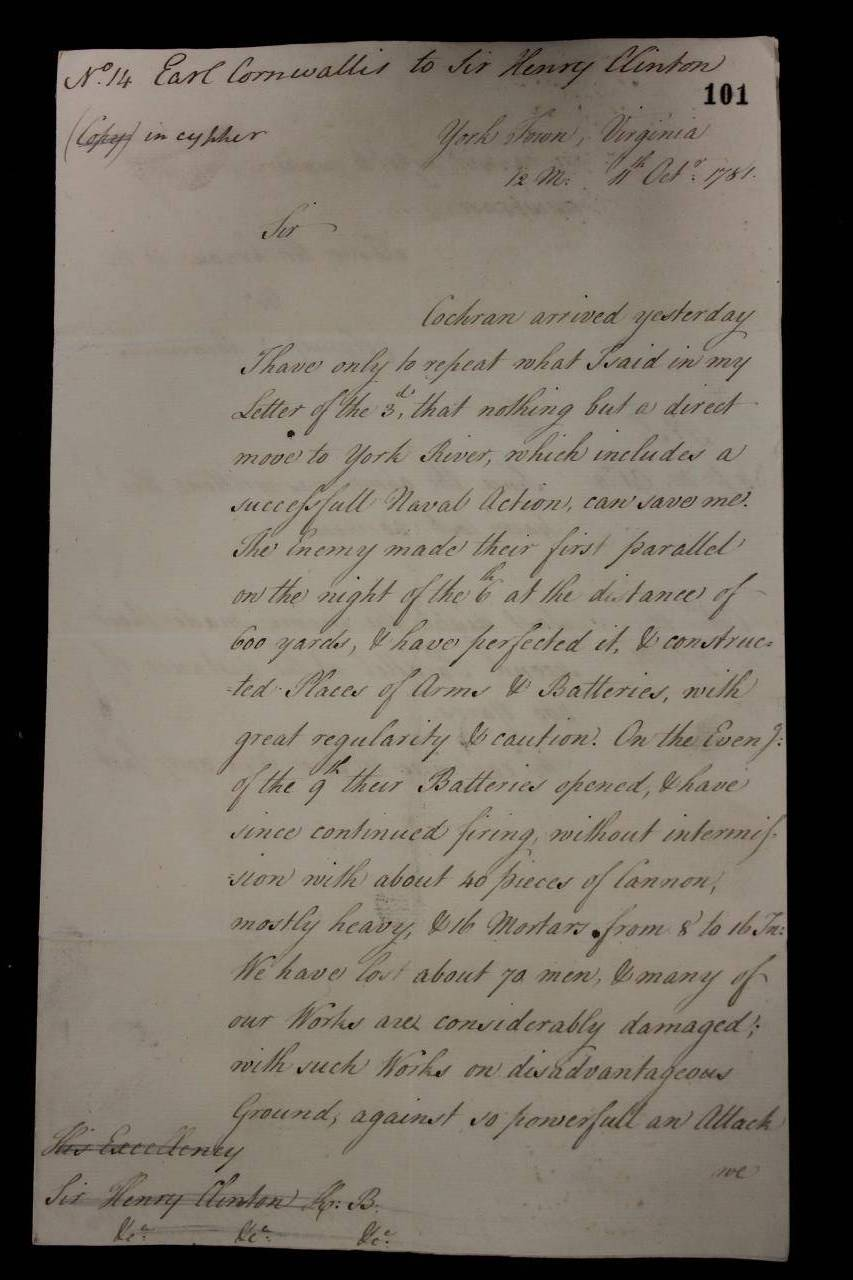 No. 14 Earl Cornwallis to Sir Henry Clinton
101
(Copy) in cypher
York Town, Virginia
12 M: 11th Octr: 1781.
Sir
Cochran arrived yesterday
I have only to repeat what I said in my
Letter of the 3d, that nothing but a direct
move to York River, which includes a
successfull Naval Action, can save me.
The Enemy made their first parallel
on the night of the 6th at the distance of
600 yards, & have perfected it, & construc-
-ted Places of Arms & Batteries, with
great regularity & caution. On the Eveng:
of the 9th their Batteries opened, & have
since continued firing, without intermis-
-sion with about 40 pieces of Cannon,
mostly heavy, & 16 Mortars from 8 to 16 In:
We have lost about 70 men, & many of
our Works are considerably damaged;
with such Works on disadvantageous
Ground, against so powerfull an Attack
we
His Excellency
Sir Henry Clinton K: B.
&ca: &ca: &ca: